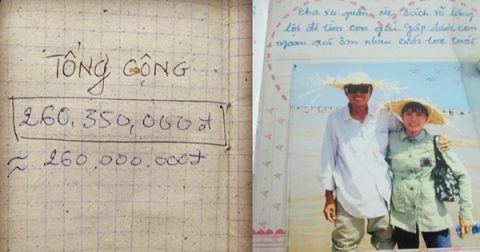 TỔNG CỘNG
260.350.000đ
≈ 260.000.000đ
cha vo quần, mẹ xách rõ lủng
lội đi tìm con ghẹ. Gặp được con
ngoan quá ôm nhau cười toe toét